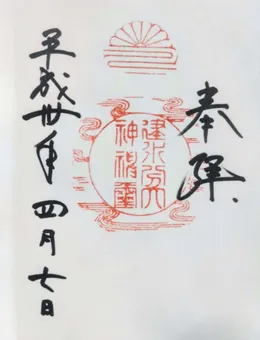 奉拝
建水分
神璽
平成卅年四月七日